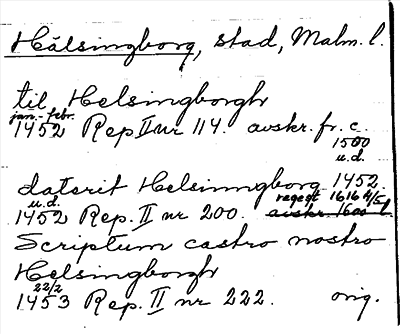 Hälsingborg, stad, Malm. l.
til Helsingborgh
jan.-febr.
1452 Rep II nr 114. avskr. fr. c.
1500
u.d.
daterit Helsinngborg 1452
u.d. regest 1616 4/5
1452 Rep. II nr 200. avskr. 1600
Scriptum castro nostro
Helsingborgh
22/2
1453 Rep. II nr 222. orig.